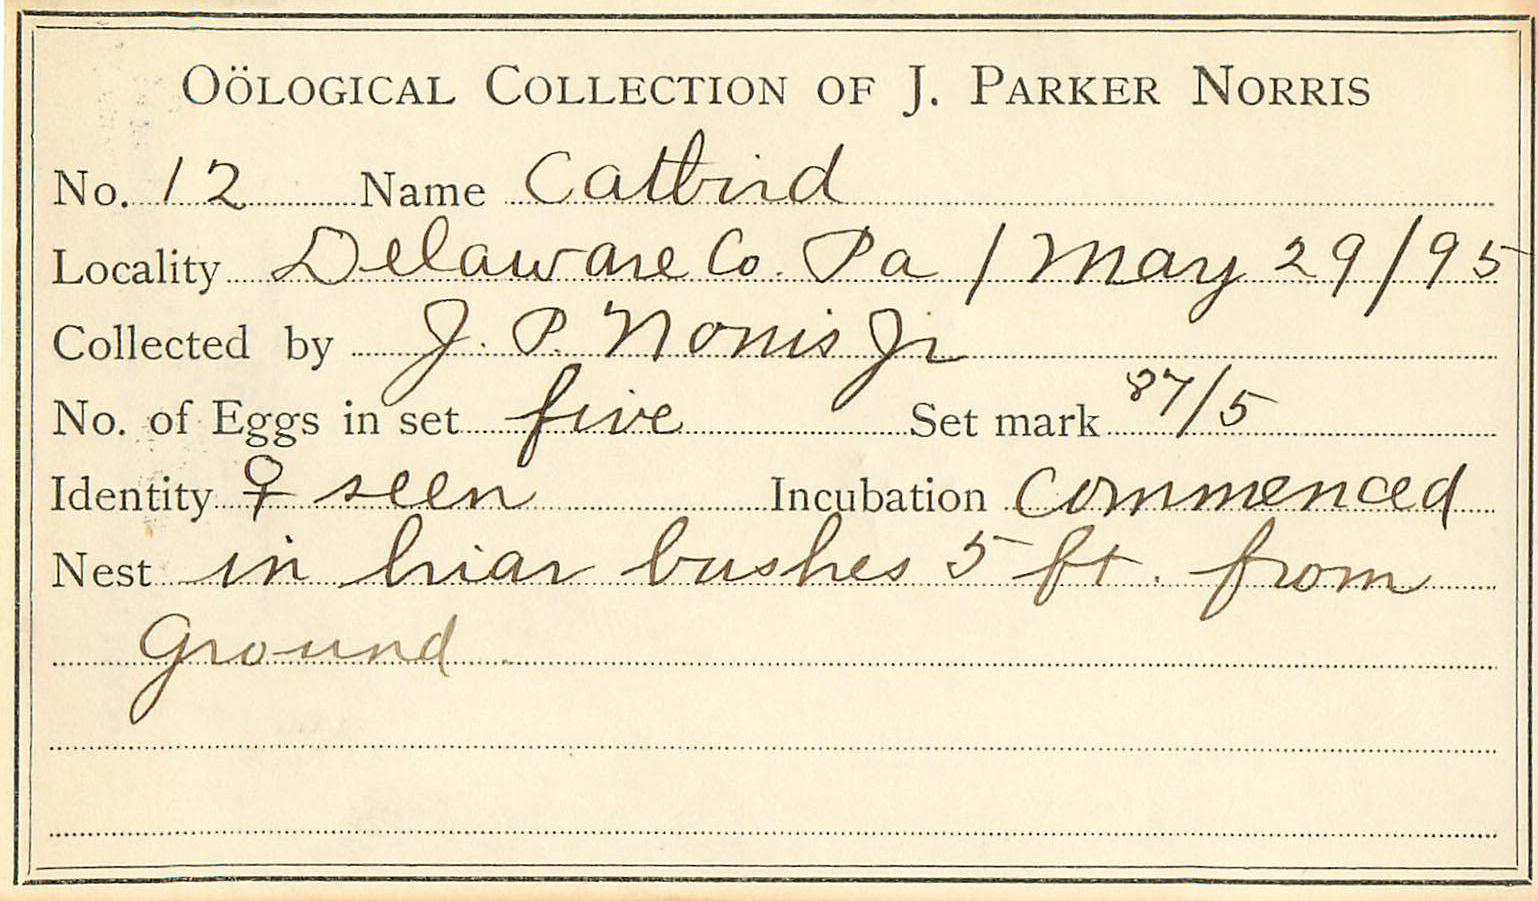 OÖLOGICAL COLLECTION OF J. PARKER NORRIS
No. 12 Name Catbird
Locality Delaware Co. Pa / May 29/95
Collected by J. P. Norris Jr
No. of Eggs in set five Set mark 87/5
Identity ♀ seen Incubation Commenced
Nest in briar bushes 5 ft. from
Ground